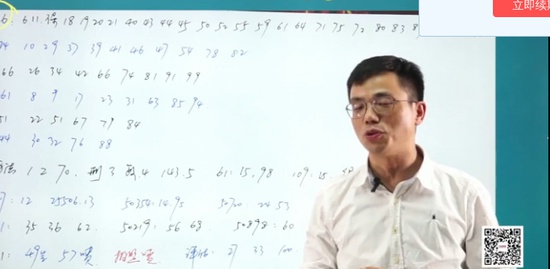 立即续
6: 6 11. 保 18 19 20 21 40 43 44 45 50 52 55 59 61 64 71 75 72 80 83 8
10 29 37 39 41 46 47 54 78 82
66 26 34 42 66 74 81 91 99
61 8 9 17 23 31 63 85 94
51 22 51 67 79 84
44 30 32 76 88
法 1 2 70. 刑 3 4 143.5 61: 15.98 109: 15.
: 12 25506.13 50354: 14.95 50720 24 53
: 35 36 62. 50219: 56 68. 50898: 60
: 49 57 33 100